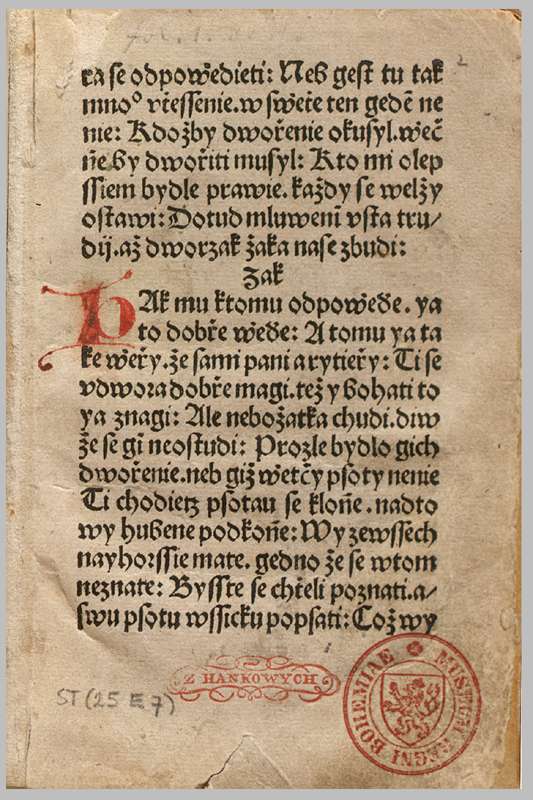 ra se odpowědieti: Neb gest tu tak
mno° vtěssenie. w swětě ten gedē ne
nie: Kdožby dwořenie okusyl. weč
ňe. by dwořiti musyl: Kto mi olep
ssiem bydle prawie. každy se welžy
ostawi: Dotud mluweni vsta tru/
dij. až dworzak žaka nase zbudi:
Zak
Žak mu ktomu odpowěďe. ya
to dobře wěďe: A tomu ya ta
ke wěřy. že sami pani a rytieřy: Ti se
vdwora dobře magi. tež y bohati to
ya znagi: Ale nebožatka chudi. diw
že se gī neostudi: Prozle bydlo gich
dwořenie. neb giž wětčy psoty nenie
Ti chodietz psotau se kloňe. nadto
wy hubene podkoňe: Wy zewssech
nayhorssie mate. gedno že se wtom
neznate: Bysste se chtěli poznati. a/
swu psotu wssicku popsati: Což wy
Z HANKOWYCH
MUSEUM REGNI BOHEMIAE
ST (25 E 7)
2